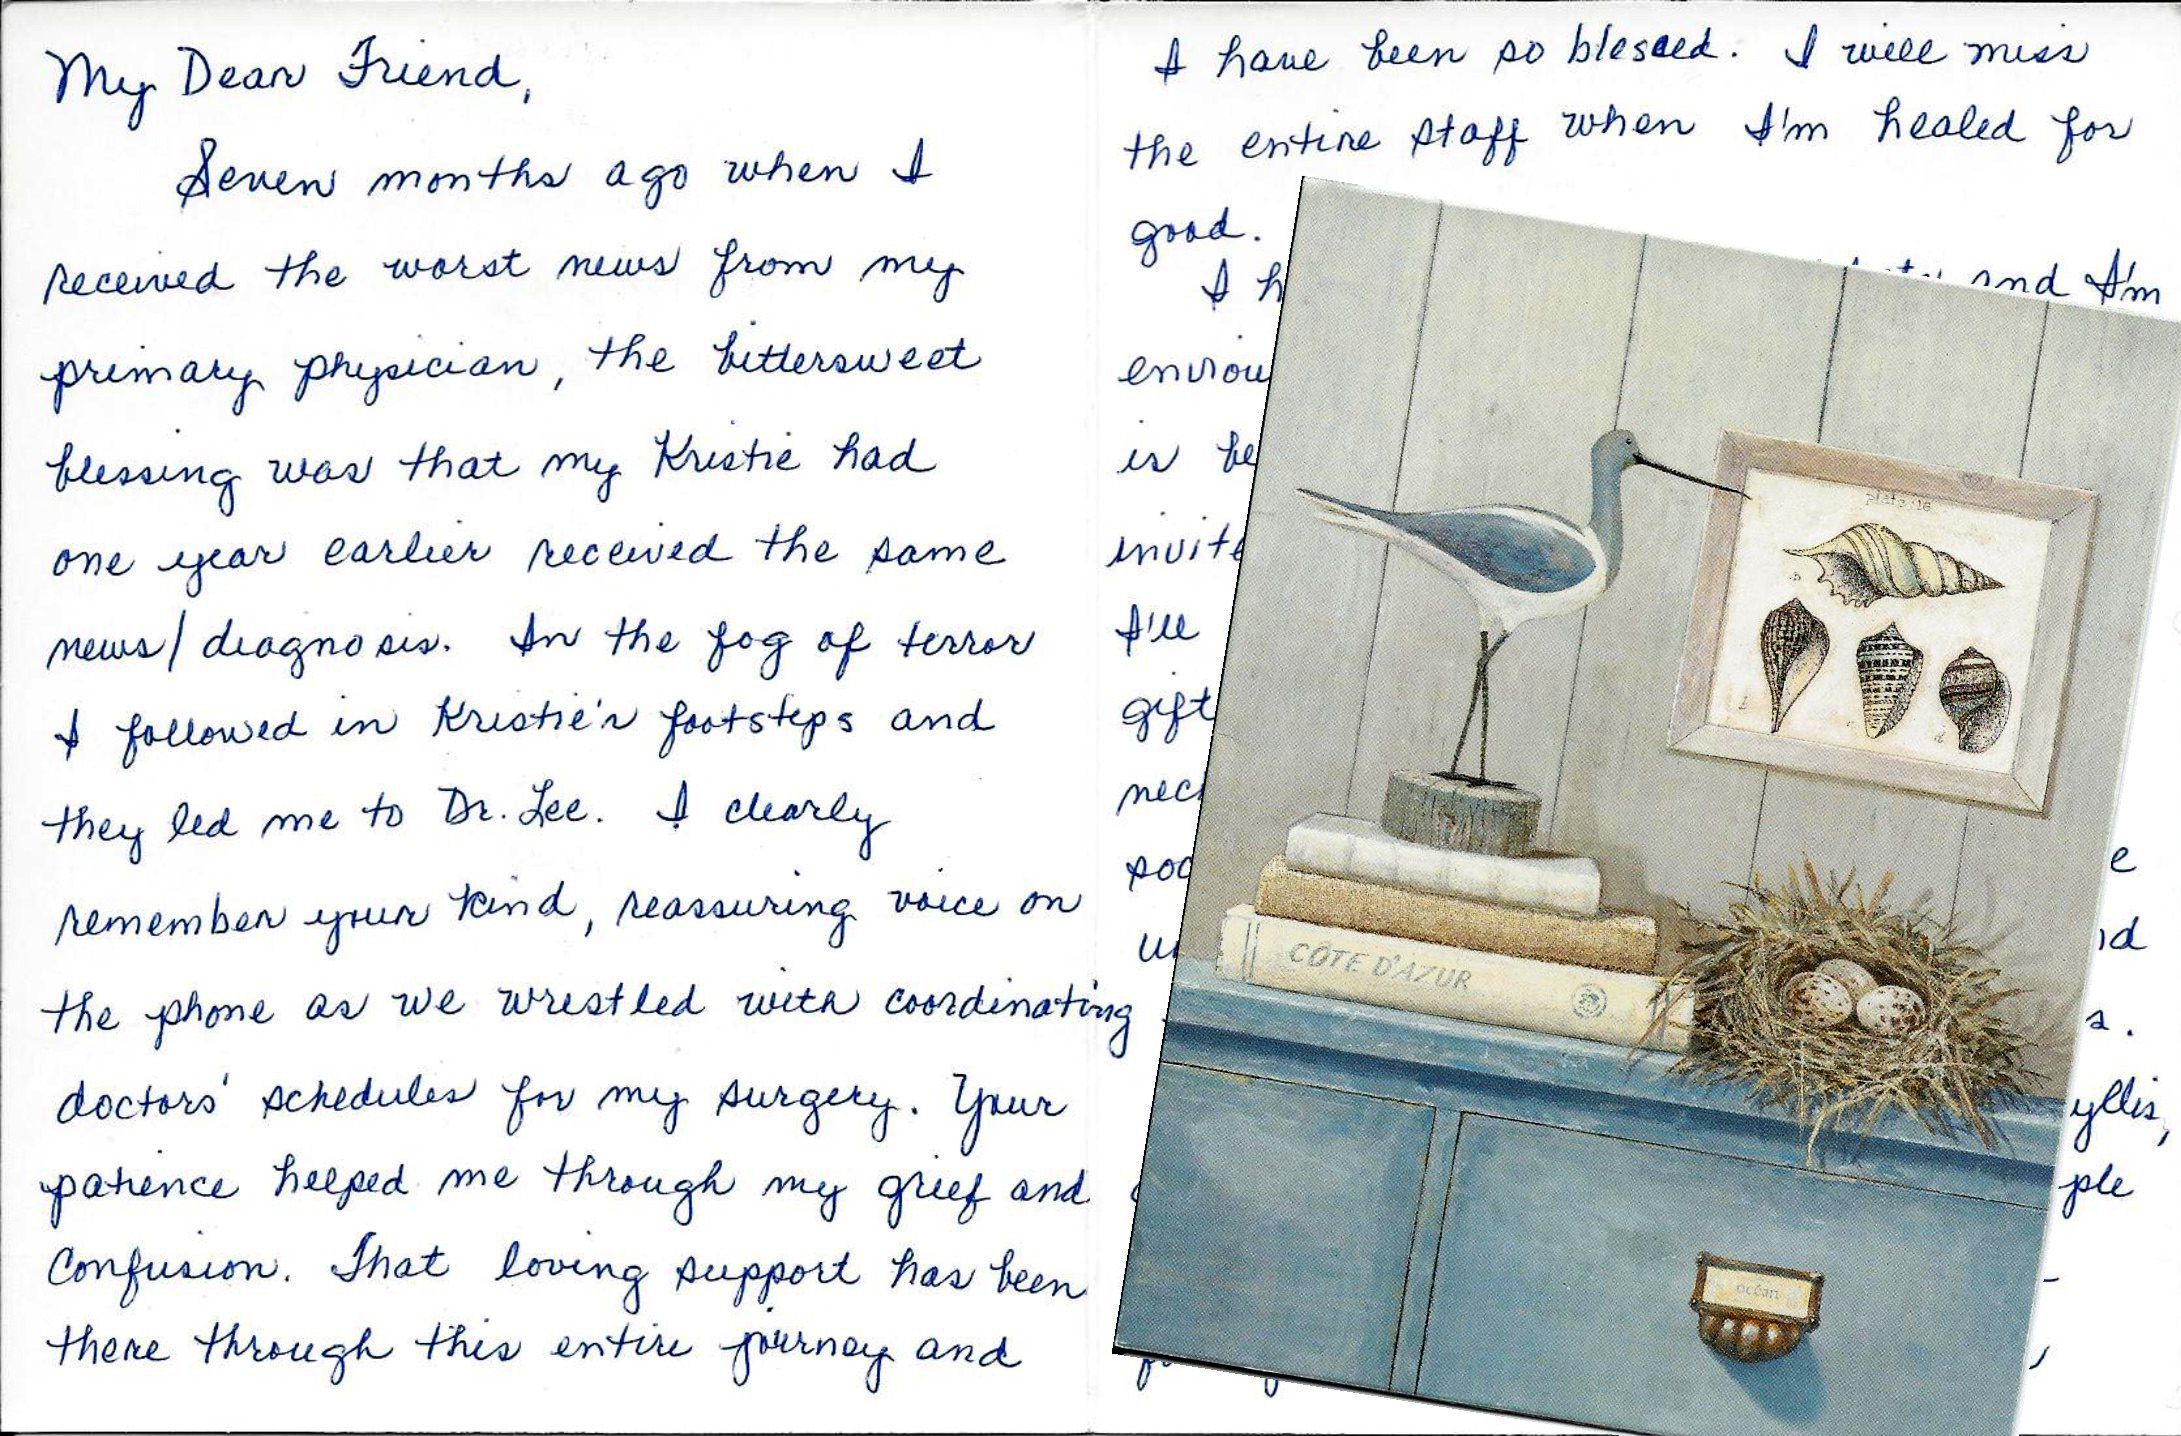 My Dear Friend,
Seven months ago when I
received the worst news from my
primary physician, the bittersweet
blessing was that my Kristie had
one year earlier received the same
news/diagnosis. In the fog of terror
I followed in Kristie's footsteps and
they led me to Dr. Lee. I clearly
remember your kind, reassuring voice on
the phone as we wrestled with coordinating
doctors' schedules for my surgery. Your
patience helped me through my grief and
confusion. That loving support has been
there through this entire journey and
I have been so blessed. I will miss
the entire staff when I'm healed for
good.
I h
and I'm
enviou
is be
invite
I'll
gift
nec
soc
e
un
id
s.
yllis,
ple
plate 16
CÔTE D'AZUR
océan